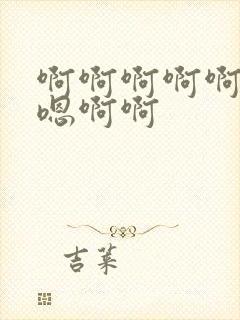 啊啊啊啊啊
嗯啊啊
吉莱